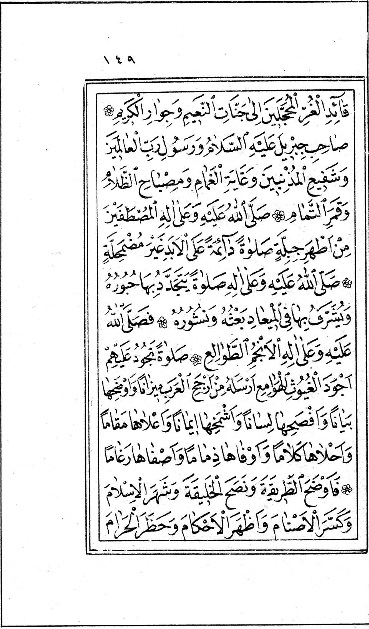 ١٤٩
قَآئِدِ الْغُرِّ الْمُحَجَّلِينَ اِلٰى جَنَّاتِ النَّعِيمِ وَجِوَارِ الْكَرِيمِ ۞
صَاحِبِ جِبْرِيلَ عَلَيْهِ السَّلَامُ وَرَسُولِ رَبِّ الْعَالَمِينَ
وَشَفِيعِ الْمُذْنِبِينَ وَغَايَةِ الْغَمَامِ وَمِصْبَاحِ الظَّلَامِ
وَقَمَرِ التَّمَامِ ۞ صَلَّى اللّٰهُ عَلَيْهِ وَعَلٰى اٰلِهِ الْمُصْطَفَيْنَ
مِنْ اَطْهَرِ جِبِلَّةٍ صَلٰوةً دَآئِمَةً عَلَى الْاَبَدِ غَيْرَ مُضْمَحِلَّةٍ
۞ صَلَّى اللّٰهُ عَلَيْهِ وَعَلٰى اٰلِهِ صَلٰوةً يَتَجَدَّدُ بِهَا حُبُورُهُ
وَيُشَرَّفُ بِهَا فِى الْمِيعَادِ بَعْثُهُ وَنُشُورُهُ ۞ فَصَلَّى اللّٰهُ
عَلَيْهِ وَعَلٰى اٰلِهِ الْاَنْجُمِ الطَّوَالِعِ ۞ صَلٰوةً تَجُودُ عَلَيْهِمْ
اَجْوَدَ الْغُيُوثِ الْهَوَامِعِ اَرْسَلَهُ مِنْ اَرْجَحِ الْعَرَبِ مِيزَانًا وَاَوْضَحِهَا
بَيَانًا وَاَفْصَحِهَا لِسَانًا وَاَشْمَخِهَا اِيمَانًا وَاَعْلَاهَا مَقَامًا
وَاَحْلَاهَا كَلَامًا وَاَوْفَاهَا ذِمَامًا وَاَصْفَاهَا رَغَامًا
۞ فَاَوْضَحَ الطَّرِيقَةَ وَنَصَحَ الْخَلِيقَةَ وَشَهَرَ الْاِسْلَامَ
وَكَسَّرَ الْاَصْنَامَ وَاَظْهَرَ الْاَحْكَامَ وَحَظَرَ الْحَرَامَ